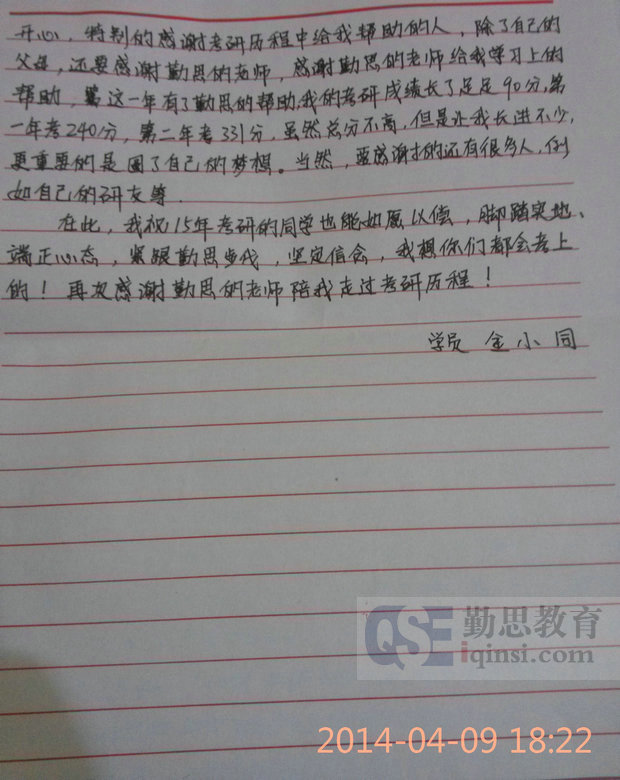 开心，特别的感谢考研历程中给我帮助的人，除了自己的
父母，还要感谢勤思的老师，感谢勤思的老师给我学习上的
帮助，这一年有了勤思的帮助，我的考研成绩长了足足90分，第
一年考240分，第二年考331分，虽然总分不高，但是让我长进不少，
更重要的是圆了自己的梦想。当然，要感谢的还有很多人，例
如自己的研友等.
在此，我祝15年考研的同学也能如愿以偿，脚踏实地、
端正心态，紧跟勤思步伐，坚定信念，我想你们都会考上
的！再次感谢勤思的老师陪我走过考研历程！
学员 金小同
QSE 勤思教育
iqinsi.com
2014-04-09 18:22